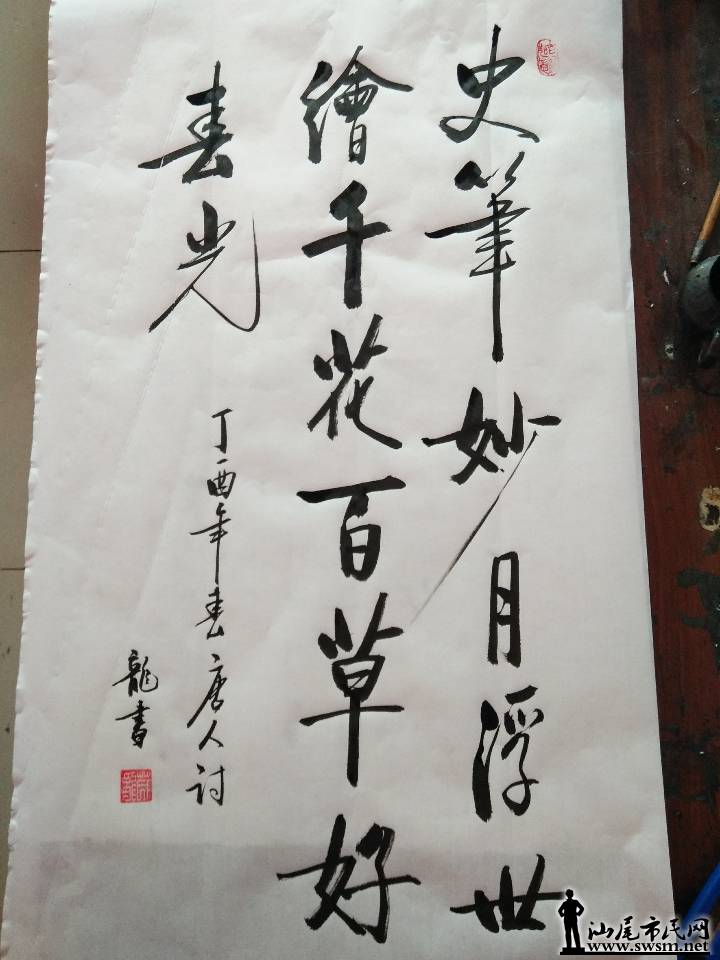 史筆妙月浮世
繪千花百草好
春光
丁酉年春唐人讨
龍書
汕尾市民网
www.swsm.net